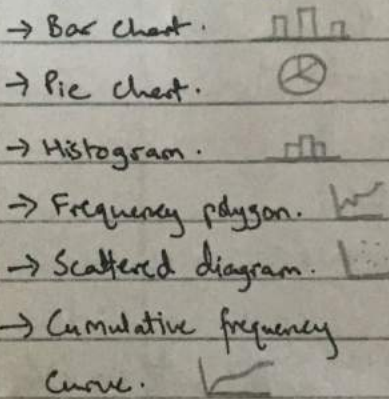 → Bar chart.
→ Pie chart.
→ Histogram.
→ Frequency polygon.
→ Scattered diagram.
→ Cumulative frequency
curve.